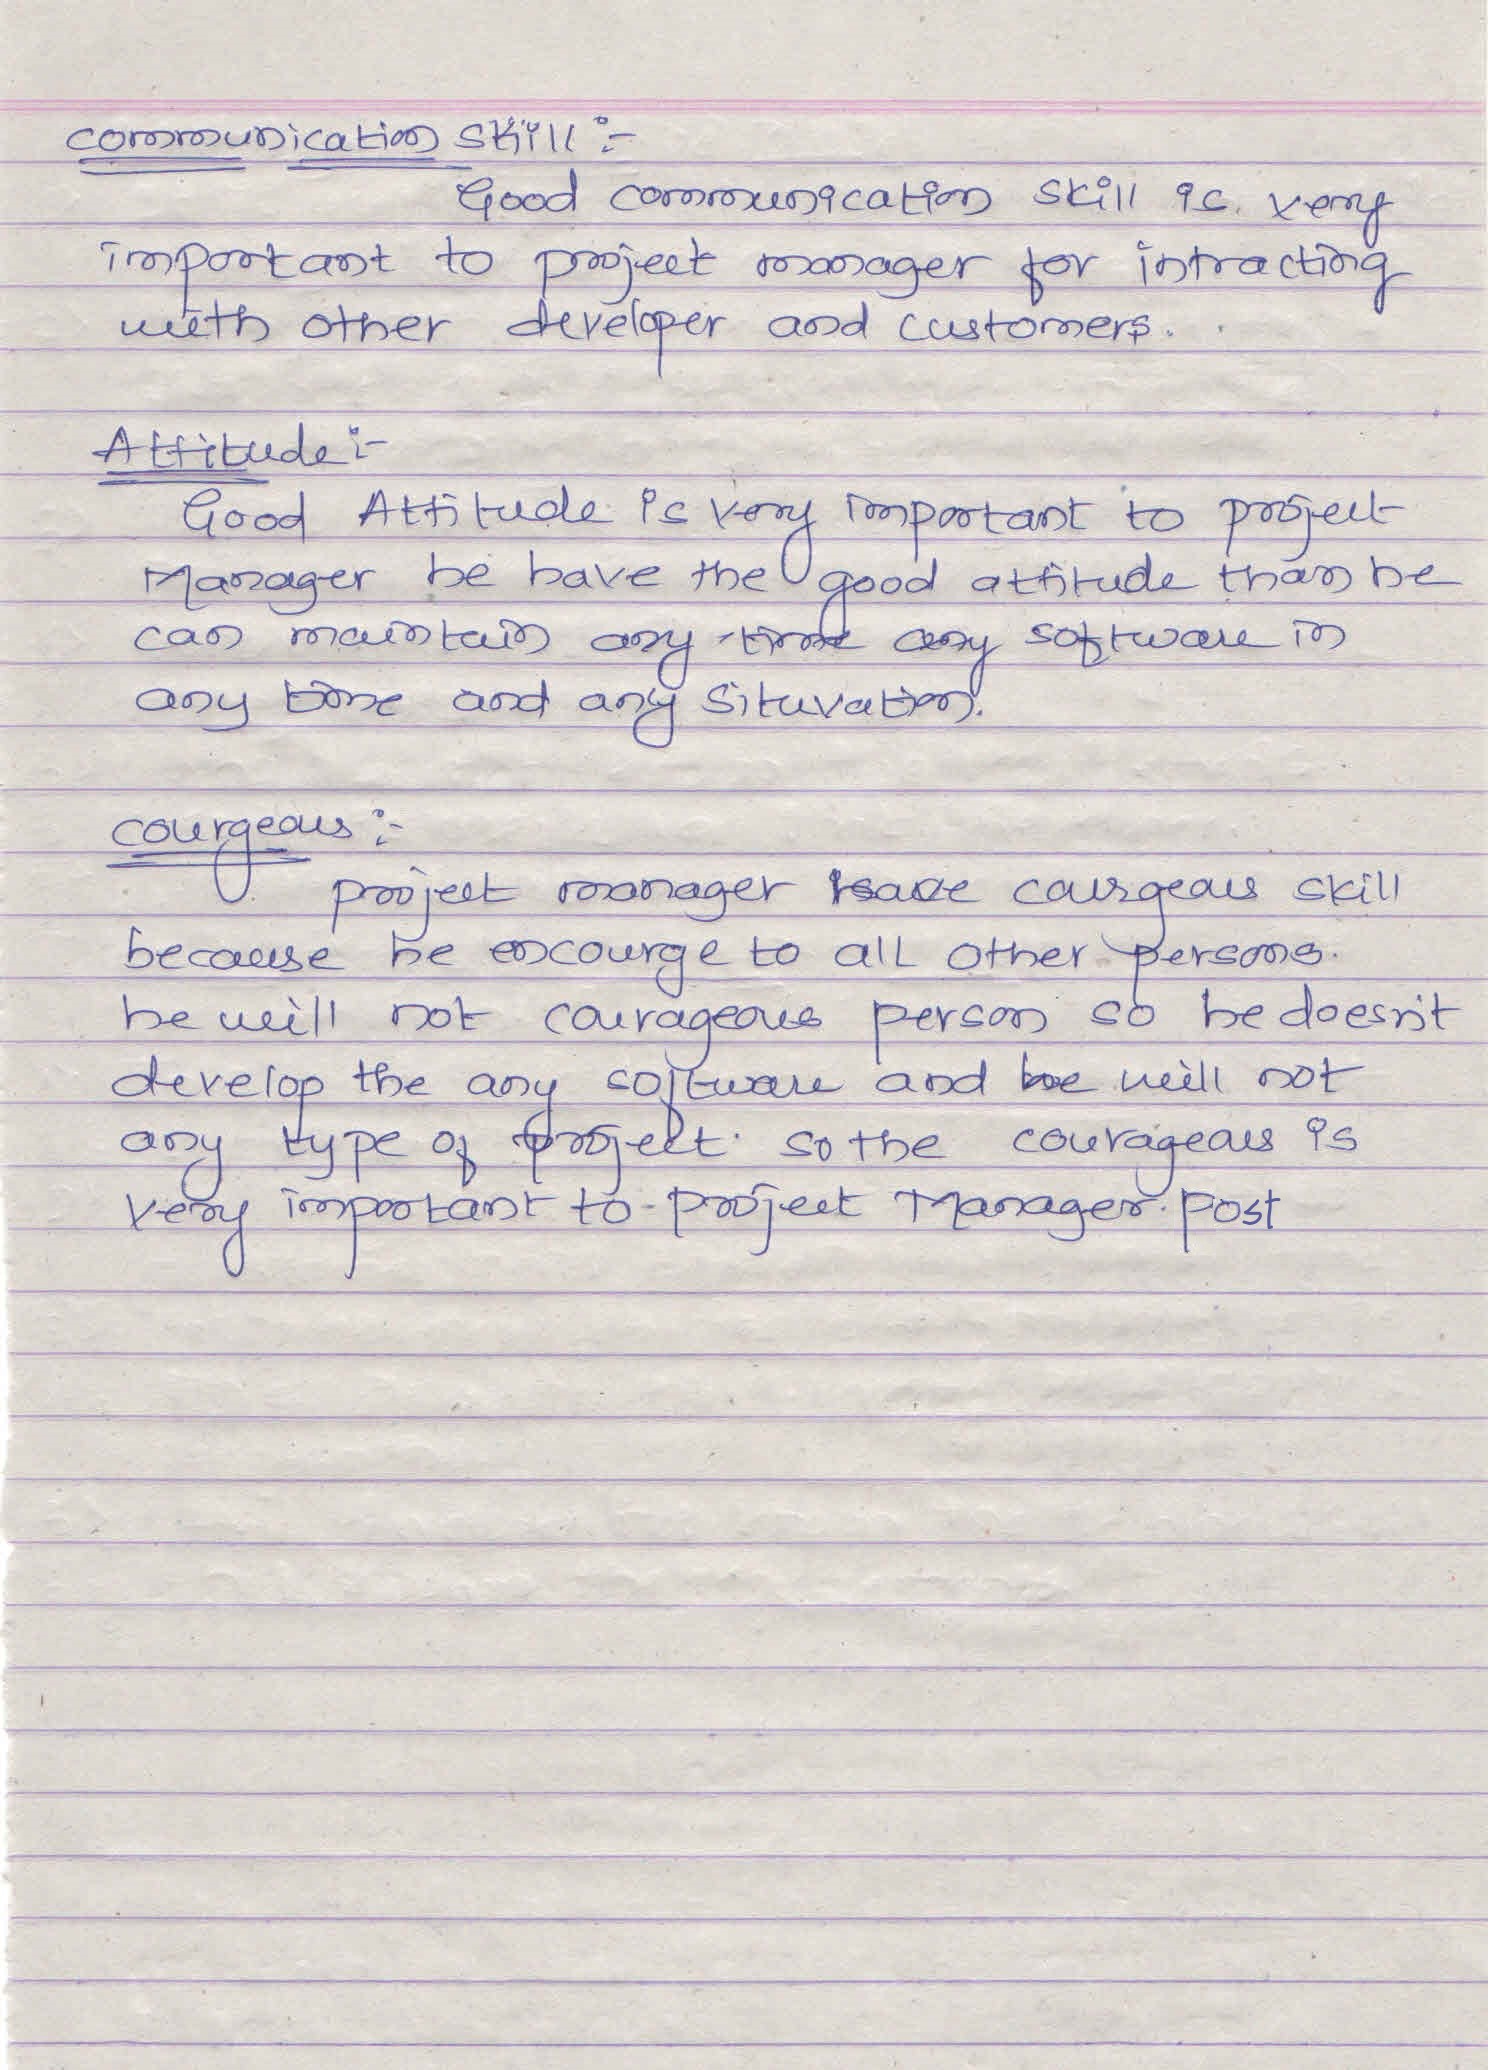 communication skill :-
Good communication skill is very
important to project manager for intracting
with other developer and customers.
Attitude :-
Good Attitude is very important to project
Manager he have the good attitude than he
can maintain any time any software in
any time and any Situvation.
courgeous :-
project manager have courgeous skill
because he encourge to all other persons.
he will not courageous person so he doesn't
develop the any software and he will not
any type of project. so the courageous is
very important to project Manager. post